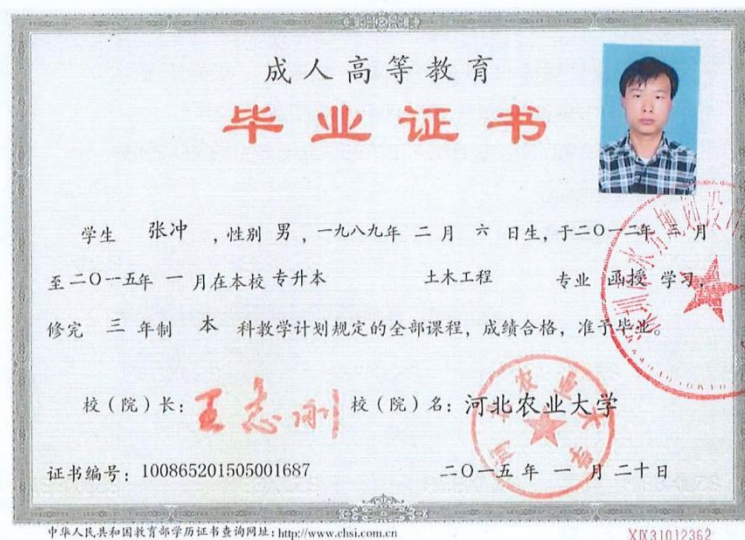 成人高等教育
毕业证书
学生 张冲 ，性别 男 ，一九八九年 二 月 六 日生，于二〇一二年 三 月
至二〇一五年 一 月在本校 专升本 土木工程 专业 函授 学习，
修完 三 年制 本 科教学计划规定的全部课程，成绩合格，准予毕业。
校（院）长：王志刚 校（院）名：河北农业大学
证书编号：100865201505001687 二〇一五 年 一 月 二十日
中华人民共和国教育部学历证书查询网址：http://www.chsi.com.cn
XIX31012362
河北农业大学